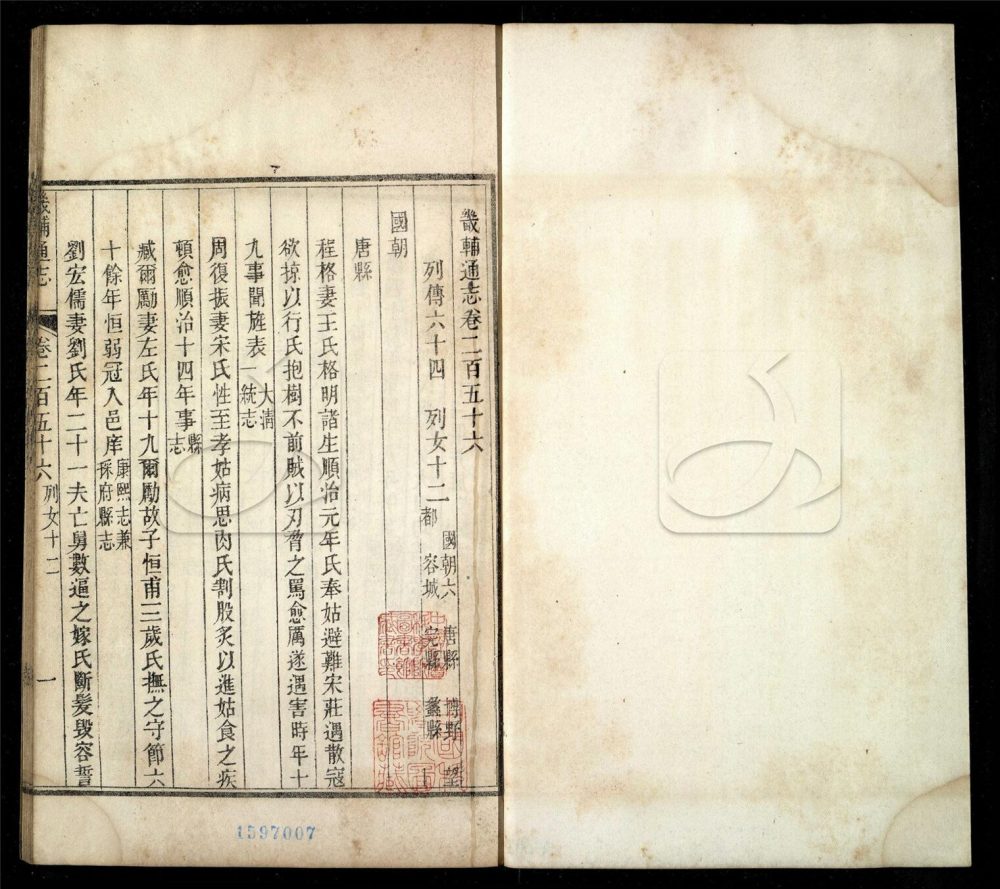 畿輔通志卷二百五十六
列傳六十四 列女十二 國朝六 唐縣 博野 望都 容城 完縣 蠡縣
國朝
唐縣
程格妻王氏格明諸生順治元年氏奉姑避難宋莊遇散寇
欲掠以行氏抱樹不前賊以刃脅之罵愈厲遂遇害時年十
九事聞旌表大清一統志
周復振妻宋氏性至孝姑病思肉氏割股炙以進姑食之疾
頓愈順治十四年事縣志
臧爾勵妻左氏年十九爾勵故子恒甫三歲氏撫之守節六
十餘年恒弱冠入邑庠康熙志兼採府縣志
劉宏儒妻劉氏年二十一夫亡舅數逼之嫁氏斷髮毀容誓
畿輔通志 卷二百五十六 列女十二 一
1597007